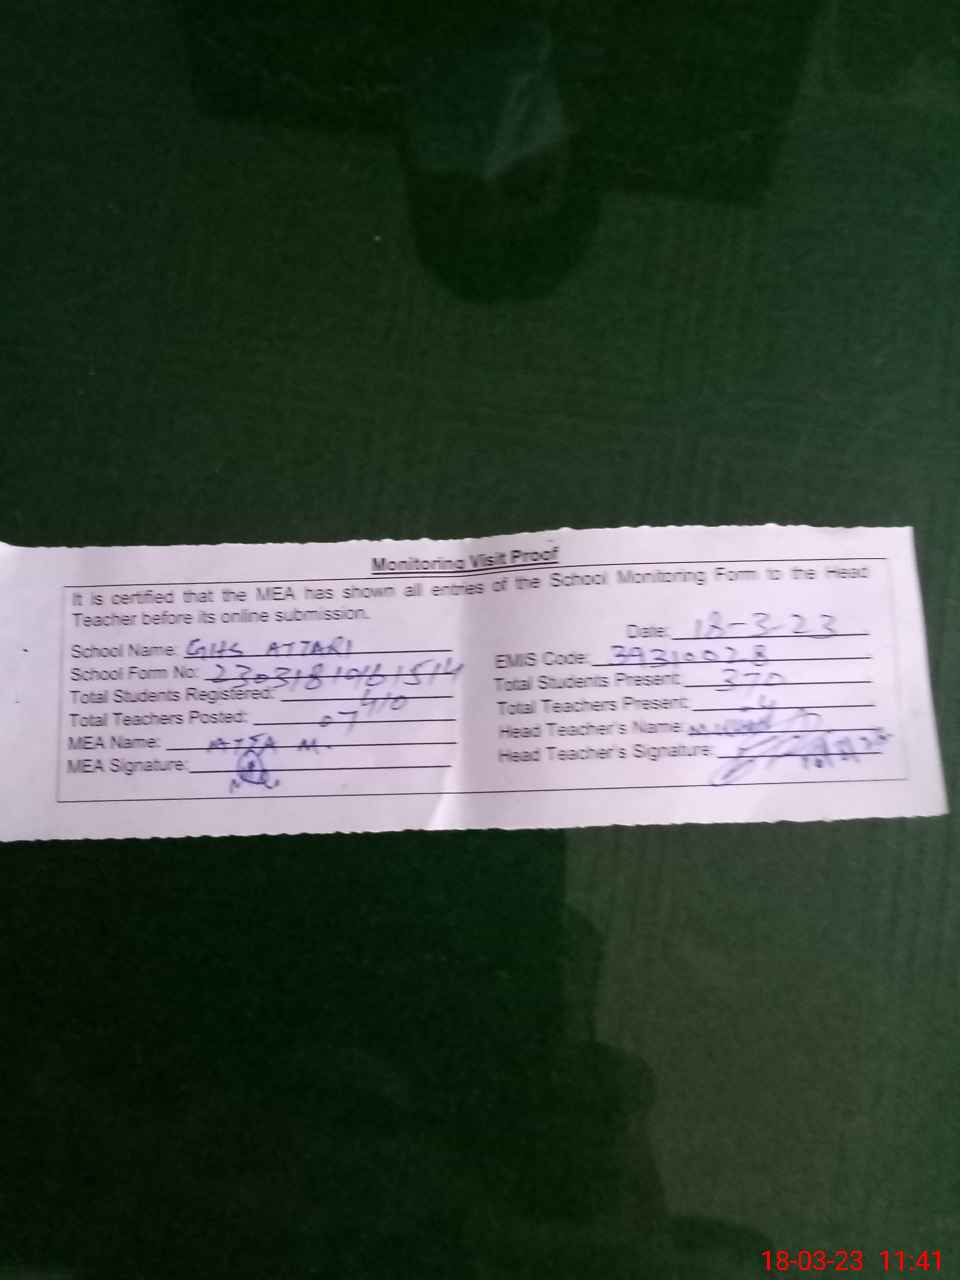 Monitoring Visit Proof
It is certified that the MEA has shown all entries of the School Monitoring Form to the Head
Teacher before its online submission.
Date: 18-3-23
School Name: GHS ATTARI
EMIS Code: 39310028
School Form No: 2303181046 1514
Total Students Present: 370
Total Students Registered: 410
Total Teachers Present: 4
Total Teachers Posted: 07
Head Teacher's Name:
MEA Name: ATTA M.
Head Teacher's Signature:
MEA Signature:
18-03-23 11:41